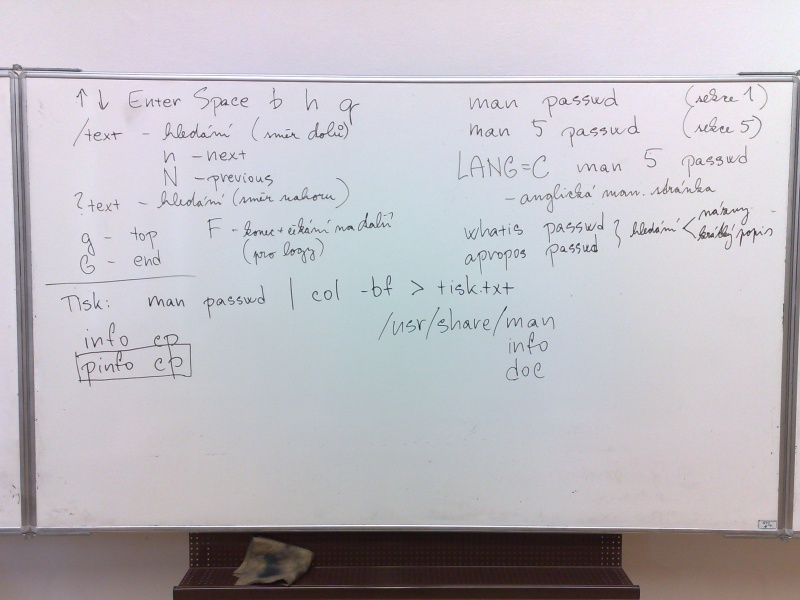 ↑ ↓ Enter Space b h q
/text - hledání (směr dolů)
n - next
N - previous
?text - hledání (směr nahoru)
g - top
G - end
F - konec + čekání na další
(pro logy)
man passwd (sekce 1)
man 5 passwd (sekce 5)
LANG=C man 5 passwd
- anglická man. stránka
whatis passwd
apropos passwd
} hledání < názvy
krátký popis
Tisk: man passwd | col -bf > tisk.txt
info cp
pinfo cp
/usr/share/man
info
doc